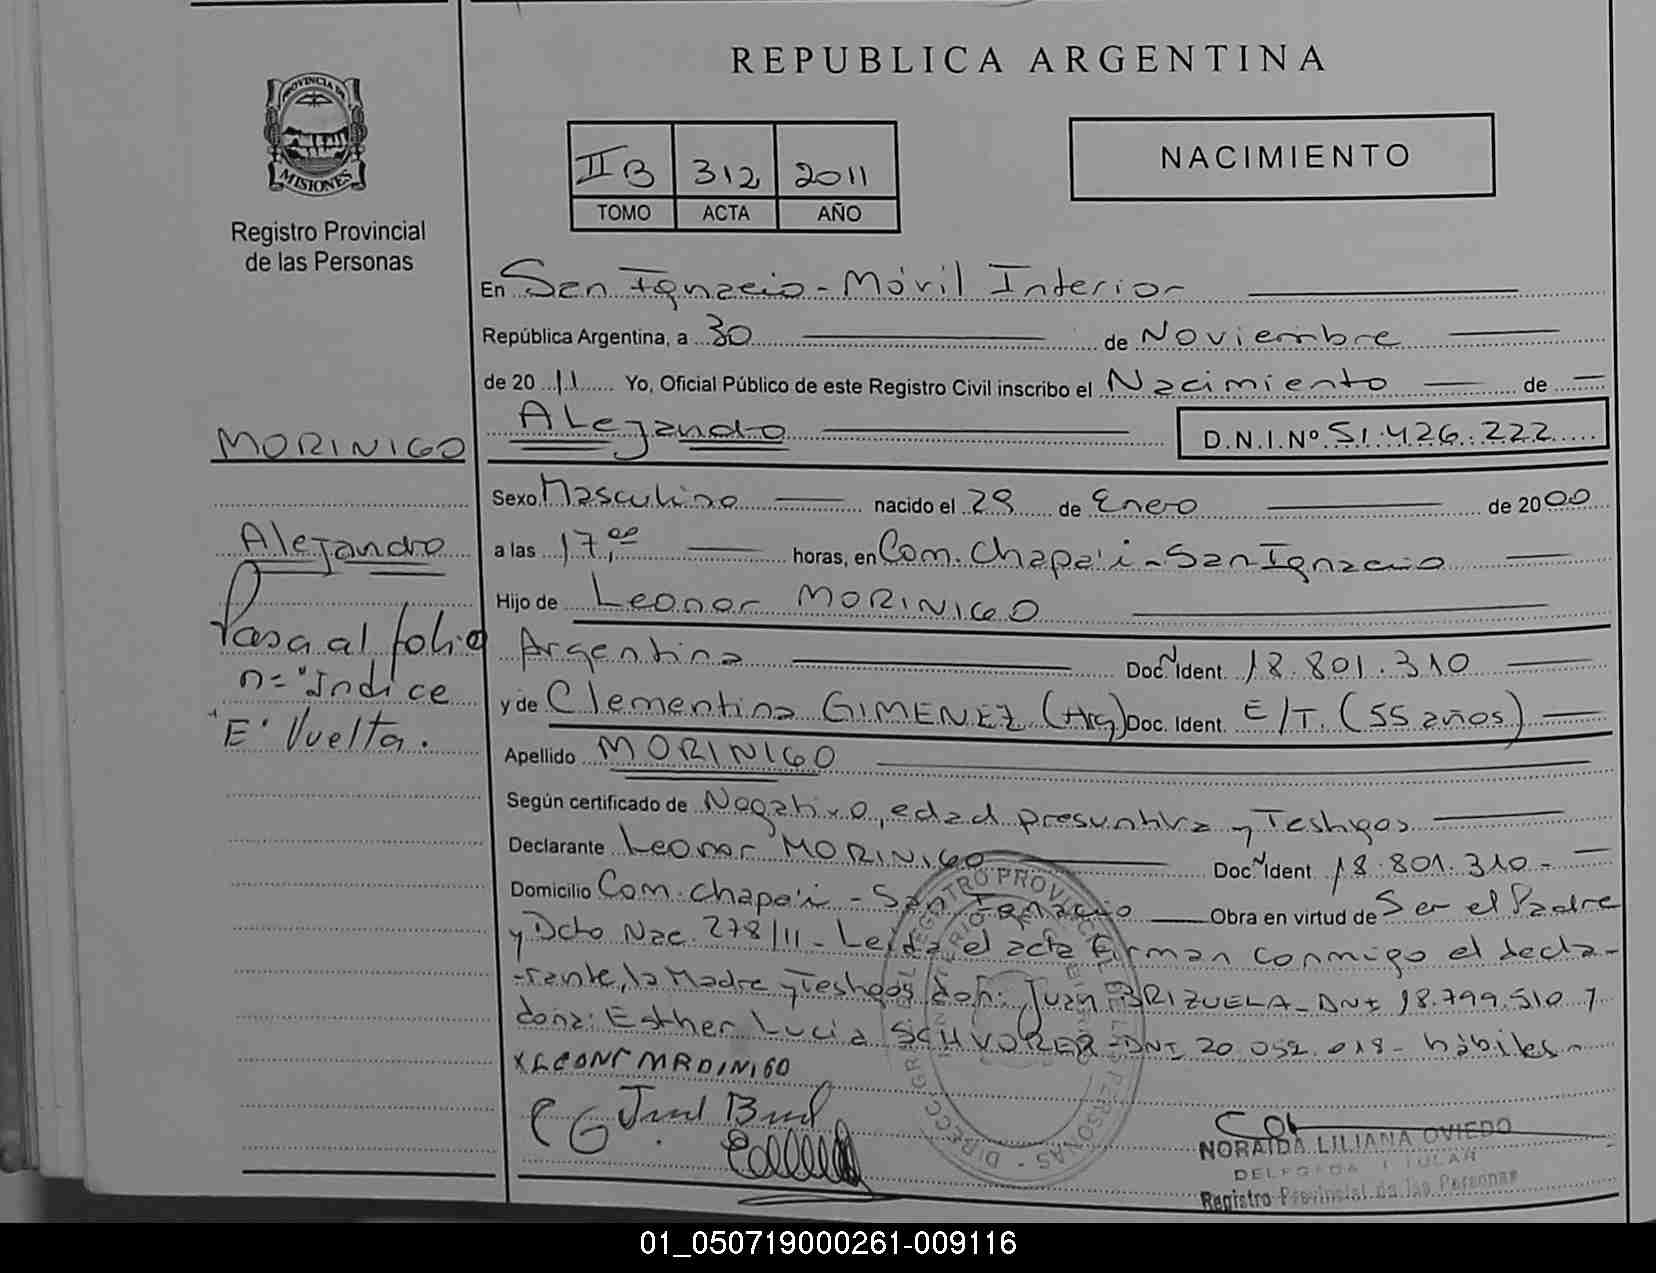 REPUBLICA ARGENTINA
PROVINCIA DE
MISIONES
Registro Provincial
de las Personas
II B 312 2011
TOMO ACTA AÑO
NACIMIENTO
En San Ignacio - Móvil Interior
República Argentina, a 30 de Noviembre
de 2011 Yo, Oficial Público de este Registro Civil inscribo el Nacimiento de
Alejandro
D.N.I.Nº 51.426.222
MORINIGO
Alejandro
Pasa al folio
n= "Indice
"E" Vuelta.
Sexo Masculino nacido el 29 de Enero de 2000
a las 17,00 horas, en Com. Chapa'i - San Ignacio
Hijo de Leonor MORINIGO
Argentina Doc. Ident. 18.801.310
y de Clementina GIMENEZ (Arg) Doc. Ident. E/T. (55 años)
Apellido MORINIGO
Según certificado de Negativo, edad presuntiva y Testigos
Declarante Leonor MORINIGO Doc. Ident. 18.801.310-
Domicilio Com. Chapa'i - San Ignacio Obra en virtud de Ser el Padre
y Dcto Nac. 278/11 - Leída el acta firman conmigo el decla-
rante, la Madre y Testigos don: Juan BRIZUELA - DNI 18.799.510 y
doña: Esther Lucia SCHVORER - DNI 20.052.018 - hábiles -
X LEONr MRDINIGO
CG
NORAIDA LILIANA OVIEDO
DELEGADA TITULAR
Registro Provincial de las Personas
01_050719000261-009116